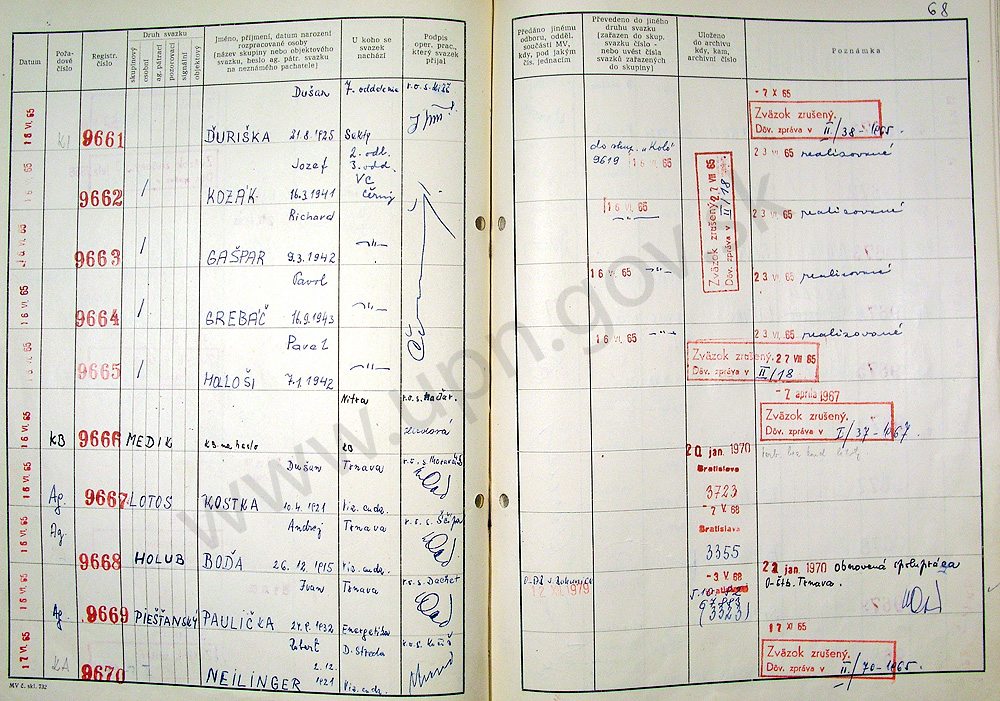 68
Datum
Pořa-
dové
číslo
Registr.
číslo
Druh svazku
skupinový
osobní
ag. pátrací
pozorovací
signální
objektový
Jméno, příjmení, datum narození
rozpracované osoby
(název skupiny nebo objektového
svazku, heslo ag. pátr. svazku
na neznámého pachatele)
U koho se
svazek
nachází
Podpis
oper. prac.,
který svazek
přijal
Předáno jinému
odboru, odděl.
součásti MV,
kdy, pod jakým
čís. jednacím
Převedeno do jiného
druhu svazku
(zařazen do skup.
svazku číslo -
nebo uvést čísla
svazků zařazených
do skupiny)
Uloženo
do archivu
kdy, kam,
archivní číslo
Poznámka
16 VI. 65
9661
Dušan
ĎURIŠKA 21.8.1925
7. oddelenie
- 7 X 65
Zväzok zrušený.
Dôv. zpráva v II/38-1965.
16 VI. 65
9662
/
Jozef
KOZÁK 16.3.1941
2. odb.
3. odd.
VC
Černý
do skup. "Kolo"
9619 16 VI. 65
23 VI. 65 realizované
Zväzok zrušený. 27 VIII 65
Dôv. zpráva v II/18
16 VI. 65
9663
/
Richard
GAŠPAR 9.3.1942
—"—
16 VI. 65
—"—
23 VI. 65 realizované
16 VI. 65
9664
/
Pavol
GREBÁČ 16.9.1943
—"—
16 VI. 65 —"—
23 VI. 65 realizované
16 VI. 65
9665
/
Pavel
HALLOŠI 7.1.1942
—"—
16 VI. 65 —"—
23 VI. 65 realizované
Zväzok zrušený. 27 VIII 65
Dôv. zpráva v II/18
16 VI. 65
KB
9666
MEDIK
KB na heslo
Nitra
- 7 apríla 1967
Zväzok zrušený.
Dôv. zpráva v I/37-1967.
16 VI. 65
Ag.
9667
LOTOS
Dušan
KOSTKA 10.4.1921
Trnava
20 jan. 1970
Bratislava
3723
16 VI. 65
Ag.
9668
HOLUB
Andrej
BOĎA 26.12.1915
Trnava
- 7 V. 68
Bratislava
3355
16 VI. 65
Ag.
9669
PIEŠŤANSKÝ
Ivan
PAULIČKA 24.8.1932
Trnava
Energetika
r.s.s. Dachet
12 XI. 1979
- 3 V. 68
(3323)
22 jan. 1970 obnovená spolupráca
O-ŠtB. Trnava.
17 VI. 65
KA
9670
Robert
NEILINGER 2.12.1921
D. Streda
17 XI 65
Zväzok zrušený.
Dôv. zpráva v II/70-1965.
MV č. skl. 732
www.upn.gov.sk